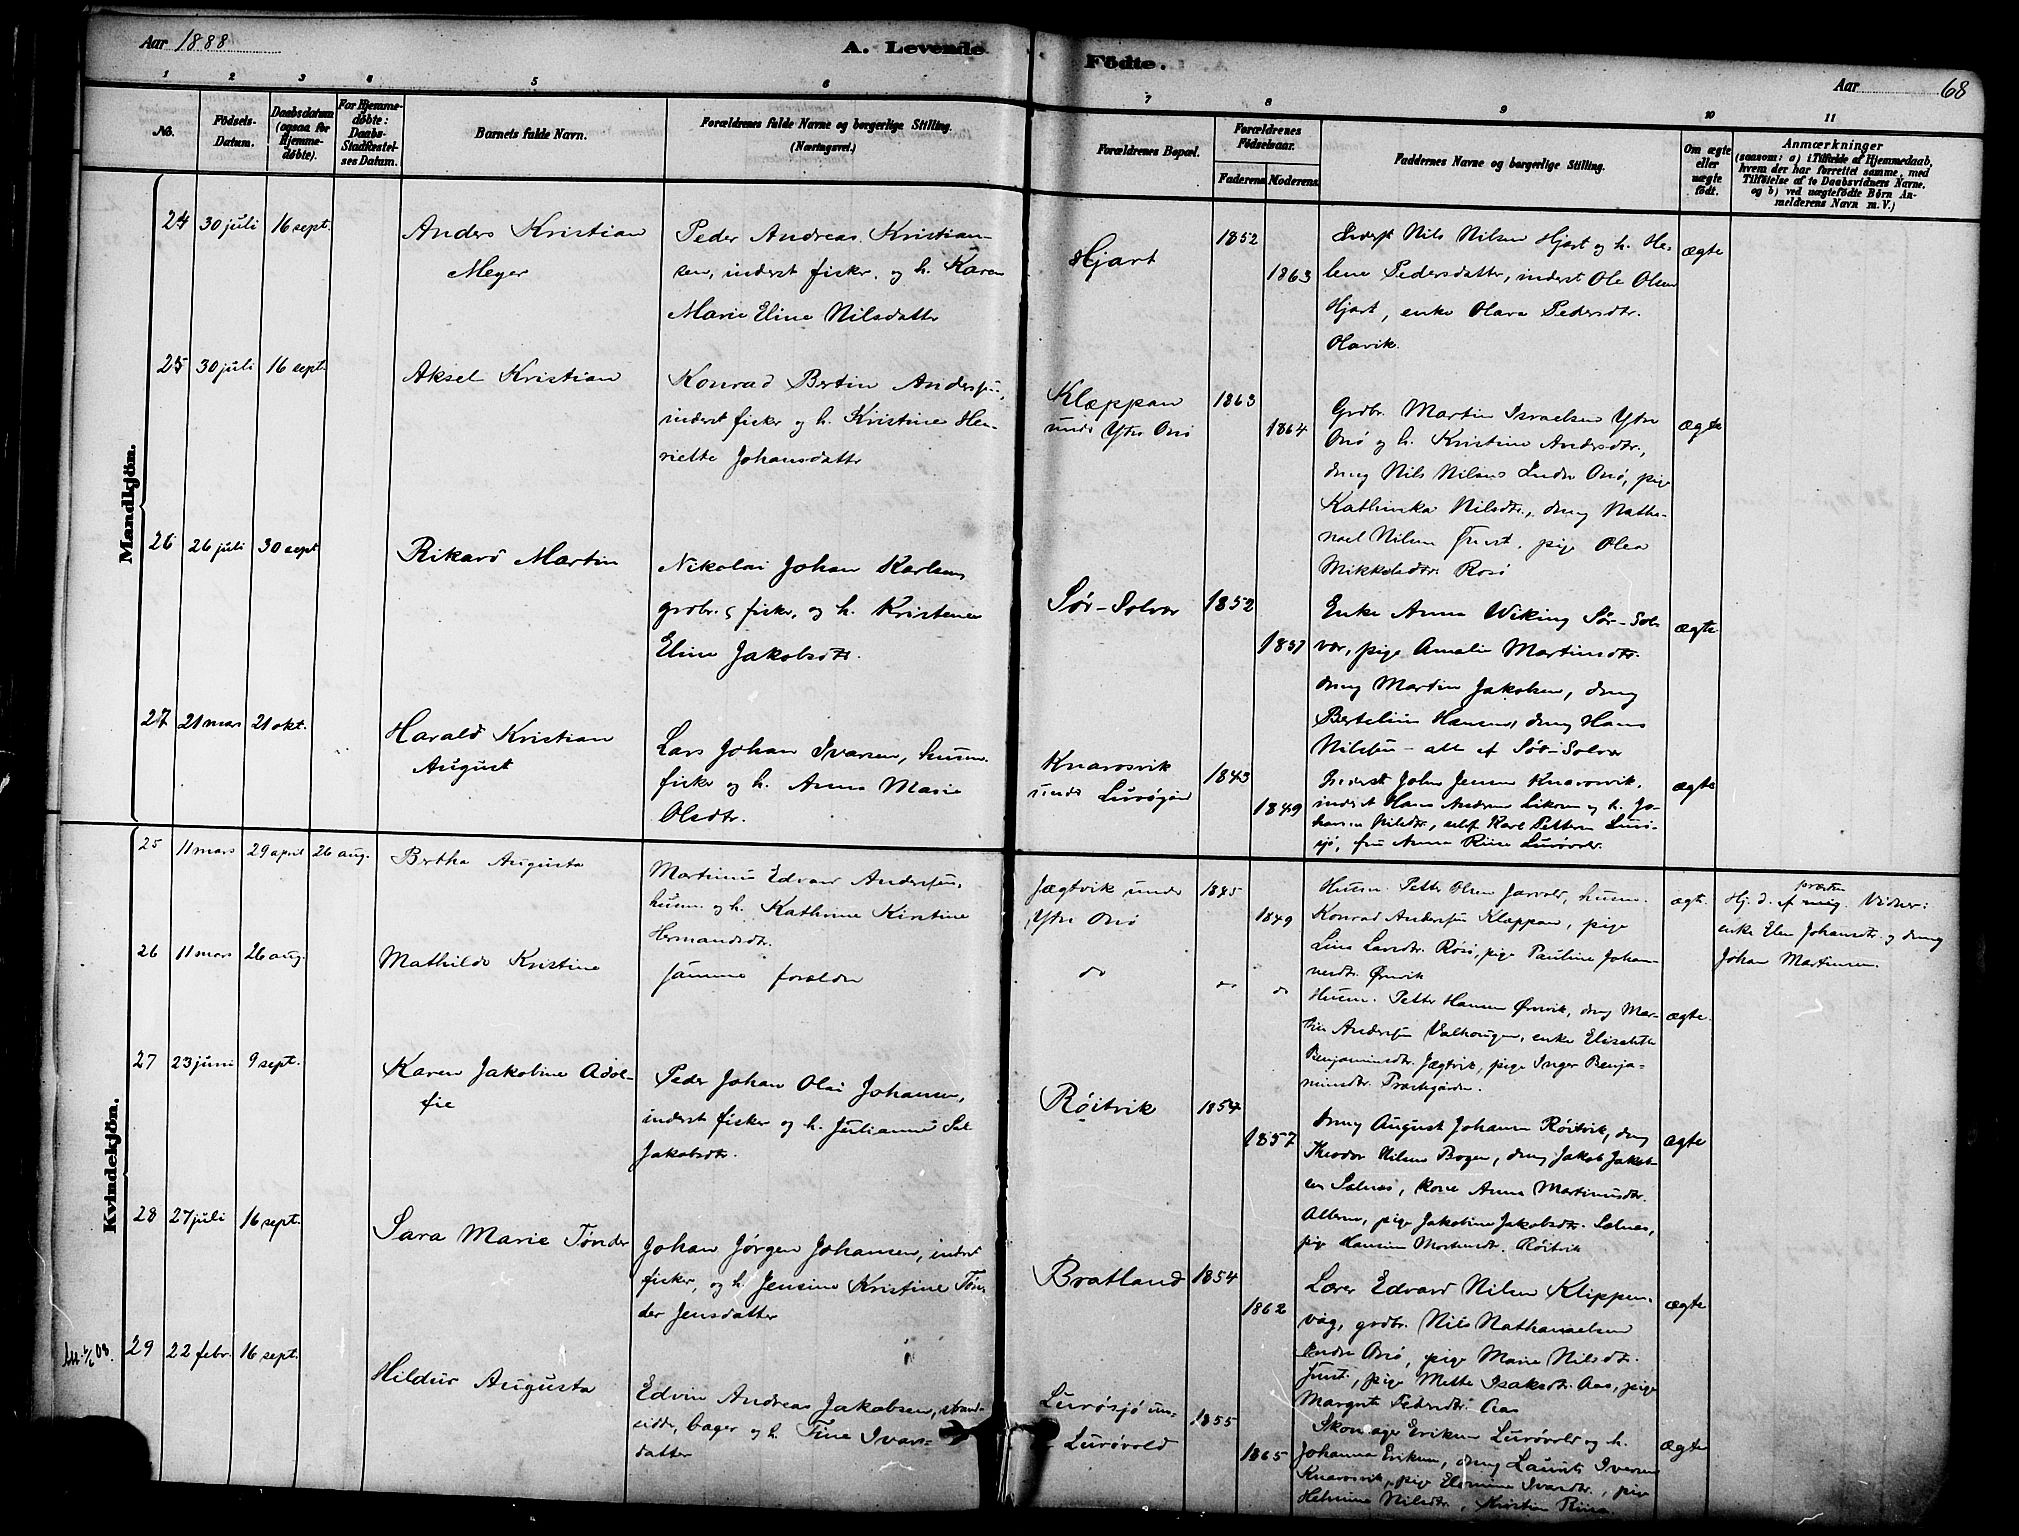 Aar 1888
A. Levende
Fødte.
Aar
68
1 2 3 4 5 6 7 8 9 10 11
No.
Födsels-
Datum.
Daabsdatum
(ogsaa for
Hjemme-
døbte).
For Hjemme-
døbte:
Daabs-
Stadfæstel-
ses Datum.
Barnets fulde Navn.
Forældrenes fulde Navne og borgerlige Stilling.
(Næringsvei.)
Forældrenes Bopæl.
Forældrenes
Födselsaar.
Faderens Moderens
Faddernes Navne og borgerlige Stilling.
Om ægte
eller
uægte
født.
Anmærkninger
(saasom: a) i Tilfælde af Hjemmedaab,
hvem der har forrettet samme, med
Tilföielse af to Daabsvidners Navne,
og b) ved uægtefödte Børn An-
melderens Navn m. V.)
Mandkjön.
24 30 juli 16 sept.
Anders Kristian
Meyer
Peder Andreas Kristian-
sen, inderst fisker, og h. Karen
Marie Eline Nilsdatter
Hjart
1852
1863
Inderst Nils Nilsen Hjart og h. He-
lene Pedersdatter, inderst Ole Olsen
Hjart, enke Olava Pedersdtr.
Olavik.
ægte
25 30 juli 16 sept.
Aksel Kristian
Konrad Bertin Andersen,
inderst fisker og h. Kristine Hen-
riette Johansdatter
Klæppan
under Ytre Onø
1863
1864
Grdbr. Martin Israelsen Ytre
Onø og h. Kristine Andersdtr.,
dreng Nils Nilsen Indre Onø, pige
Kathinka Nilsdtr., dreng Natha-
nael Nilsen, pige Olea
Mikkelsdtr. Rosø
ægte
26 26 juli 30 sept
Rikard Martin
Nikolai Johan Karlsen
grdbr. fisker, og h. Kristense
Eline Jakobsdtr.
Sør-Solvær
1852
1857
Enke Anna Wiking Sør-Sol-
vær, pige Amalie Martinsdtr.
dreng Martin Jakobsen, dreng
Bertelius Hansen, dreng Hans
Nilsen - alle af Sør-Solvær
ægte
27 21 mars 21 okt.
Harald Kristian
August
Lars Johan Ivarsen, husm.
fisker og h. Anna Marie
Olsdtr.
Knarosvik
under Lurøgård
1843
1849
Inderst John Jensen Knarosvik,
inderst Hans Andreas og h. Jo-
hanna Nilsdtr., Karl Pettersen Lurø-
sjø, fru Anna Riise Lurøvold.
ægte
Kvindekjön.
25 11 mars 29 april 26 aug.
Bertha Augusta
Martinus Edvard Andersen,
husm. og h. Kathrine Kirstine
Hermandsdtr.
Jægtvik under
Ytre Onø
1849
Husm. Petter Olsen, husm.
Konrad Andersen Klæppan, pige
Lina Larsdtr. Rosø, pige Pauline Johan-
nesdtr. Ørnvik
ægt.
Hj. d. af mig. Vidner:
præsten
enke Elen Johansdtr. og dreng
Johan Martinsen.
26 11 mars 26 aug.
Mathilde Kristine
samme forældre
do
do
do
Husm. Petter Hansen Ørnvik, dreng Mar-
tin Andersen Valhaugen, enke Elisabeth
Benjaminsdtr. Jægtvik, pige Inger Benja-
minsdtr. Præstegården.
ægte.
27 23 juni 9 sept.
Karen Jakobine Adol-
fie
Peder Johan Olai Johansen,
inderst fisker og h. Julianna
Jakobsdtr.
Røitvik
1854
1857
Dreng August Johansen Røitvik, dreng
Theodor Nilsen Bogen, dreng Jakob Jakob-
sen Solnes, kone Anna Martinusdtr.
pige Jakobine Jakobsdtr. Solnes,
pige Hansine Mortensdtr. Røitvik
ægte
28 27 juli 16 sept.
Sara Marie Tønder
Johan Jørgen Johansen, inderst
fisker, og h. Jensine Kristine Tøn-
der Jensdatter
Bratland
1854
1862
Lærer Edvard Nilsen Klippen-
våg, grdbr. Nils Nathanaelsen
Indre Onø, pige Marie Nilsdtr.
pige Mette Isaksdtr. Aas, pige
Margrete Pedersdtr. Aas
ægte
29 22 febr. 16 sept.
Hildur Augusta
Edvin Andreas Jakobsen, strand-
sidder, bager og h. Tine Ivars-
datter
Lurøsjø un-
Lurøvold
1855
1865
Skomager Eriksen Lurøvold og h.
Johanna Eriksen, dreng Laurits Iversen
Knarosvik, pige Elonine Ivarsdtr., pige
Helmine Nilsdtr., Kristine Riise
ægte